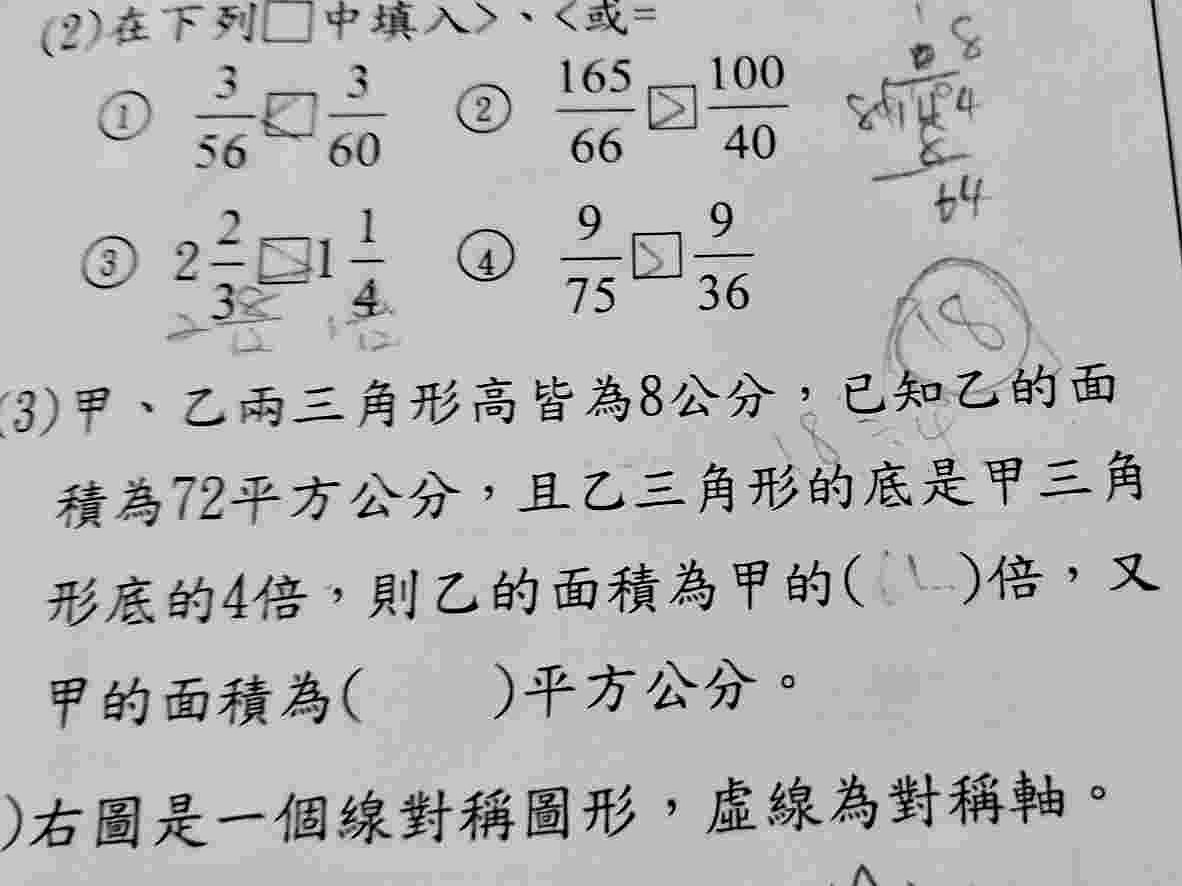 (2)在下列□中填入>、<或=
① 3/56 < 3/60 ② 165/66 > 100/40
③ 2 2/3 > 1 1/4 ④ 9/75 > 9/36
2 8/12 12
8 144 8 64
18
(3)甲、乙兩三角形高皆為8公分，已知乙的面
18÷4
積為72平方公分，且乙三角形的底是甲三角
形底的4倍，則乙的面積為甲的( )倍，又
甲的面積為( )平方公分。
)右圖是一個線對稱圖形，虛線為對稱軸。